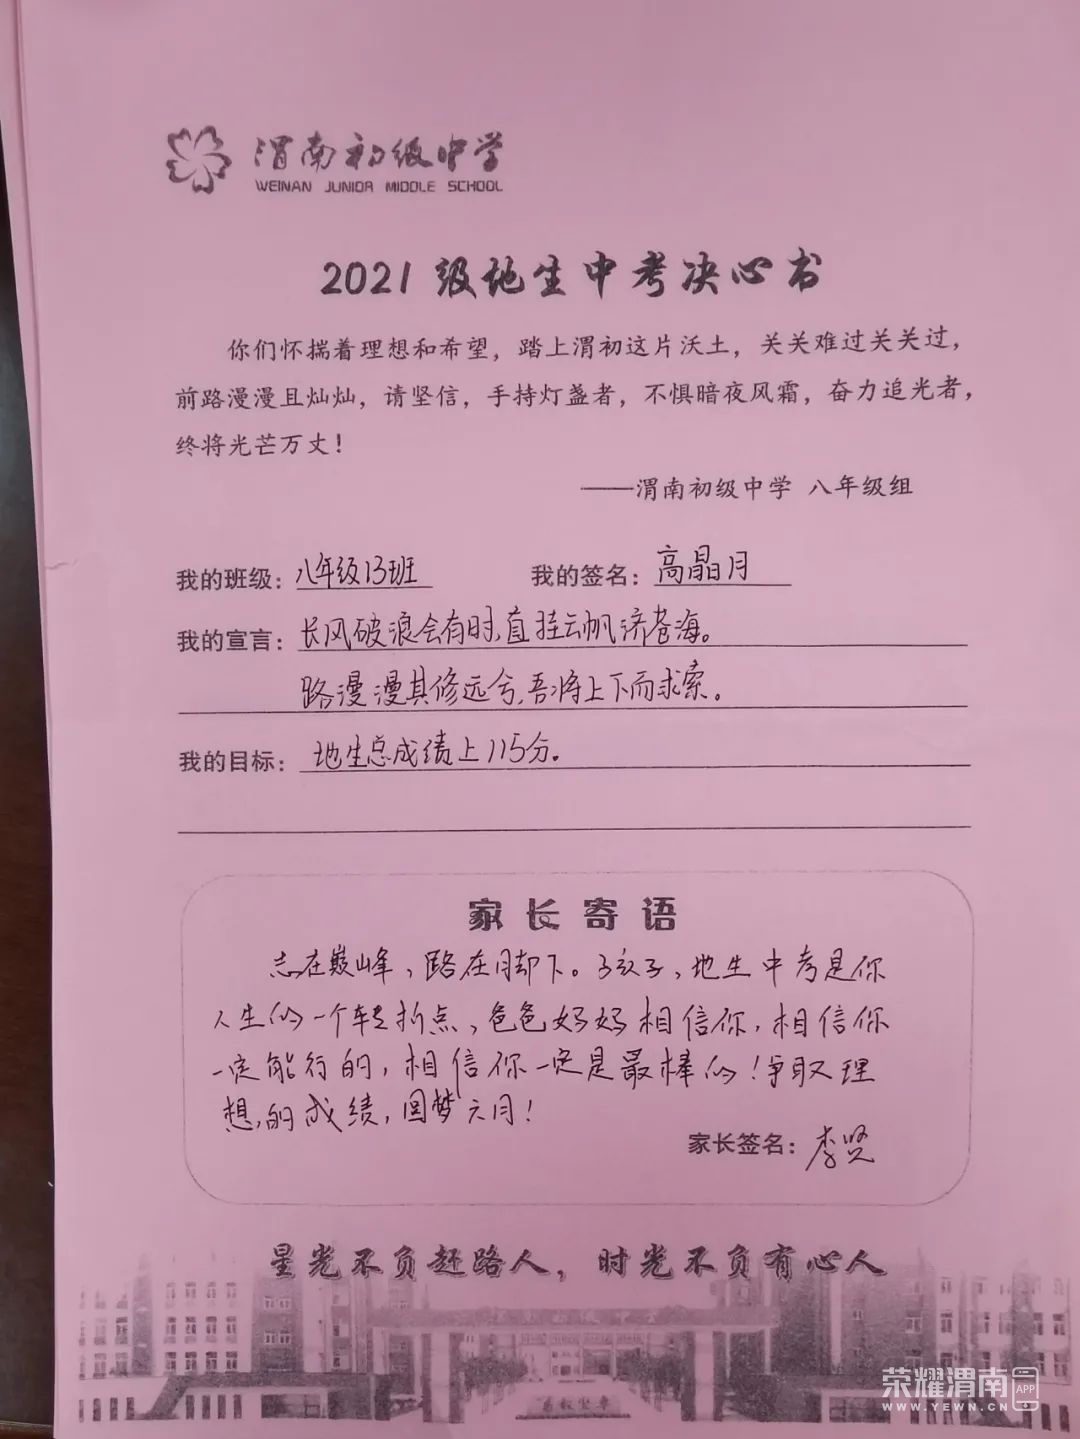 渭南初级中学
WEINAN JUNIOR MIDDLE SCHOOL
2021级地生中考决心书
你们怀揣着理想和希望，踏上渭初这片沃土，关关难过关关过，
前路漫漫且灿灿，请坚信，手持灯盏者，不惧暗夜风霜，奋力追光者，
终将光芒万丈！
——渭南初级中学 八年级组
我的班级：八年级13班 我的签名：高晶月
我的宣言：长风破浪会有时，直挂云帆济苍海。
路漫漫其修远兮，吾将上下而求索。
我的目标：地生总成绩上115分。
家长寄语
志在巅峰，路在脚下。孩子，地生中考是你
人生的一个转折点，爸爸妈妈相信你，相信你
一定能行的，相信你一定是最棒的！争取理
想的成绩，圆梦六月！
家长签名：李贤
星光不负赶路人，时光不负有心人
荣耀渭南 APP
WWW.YEWN.CN